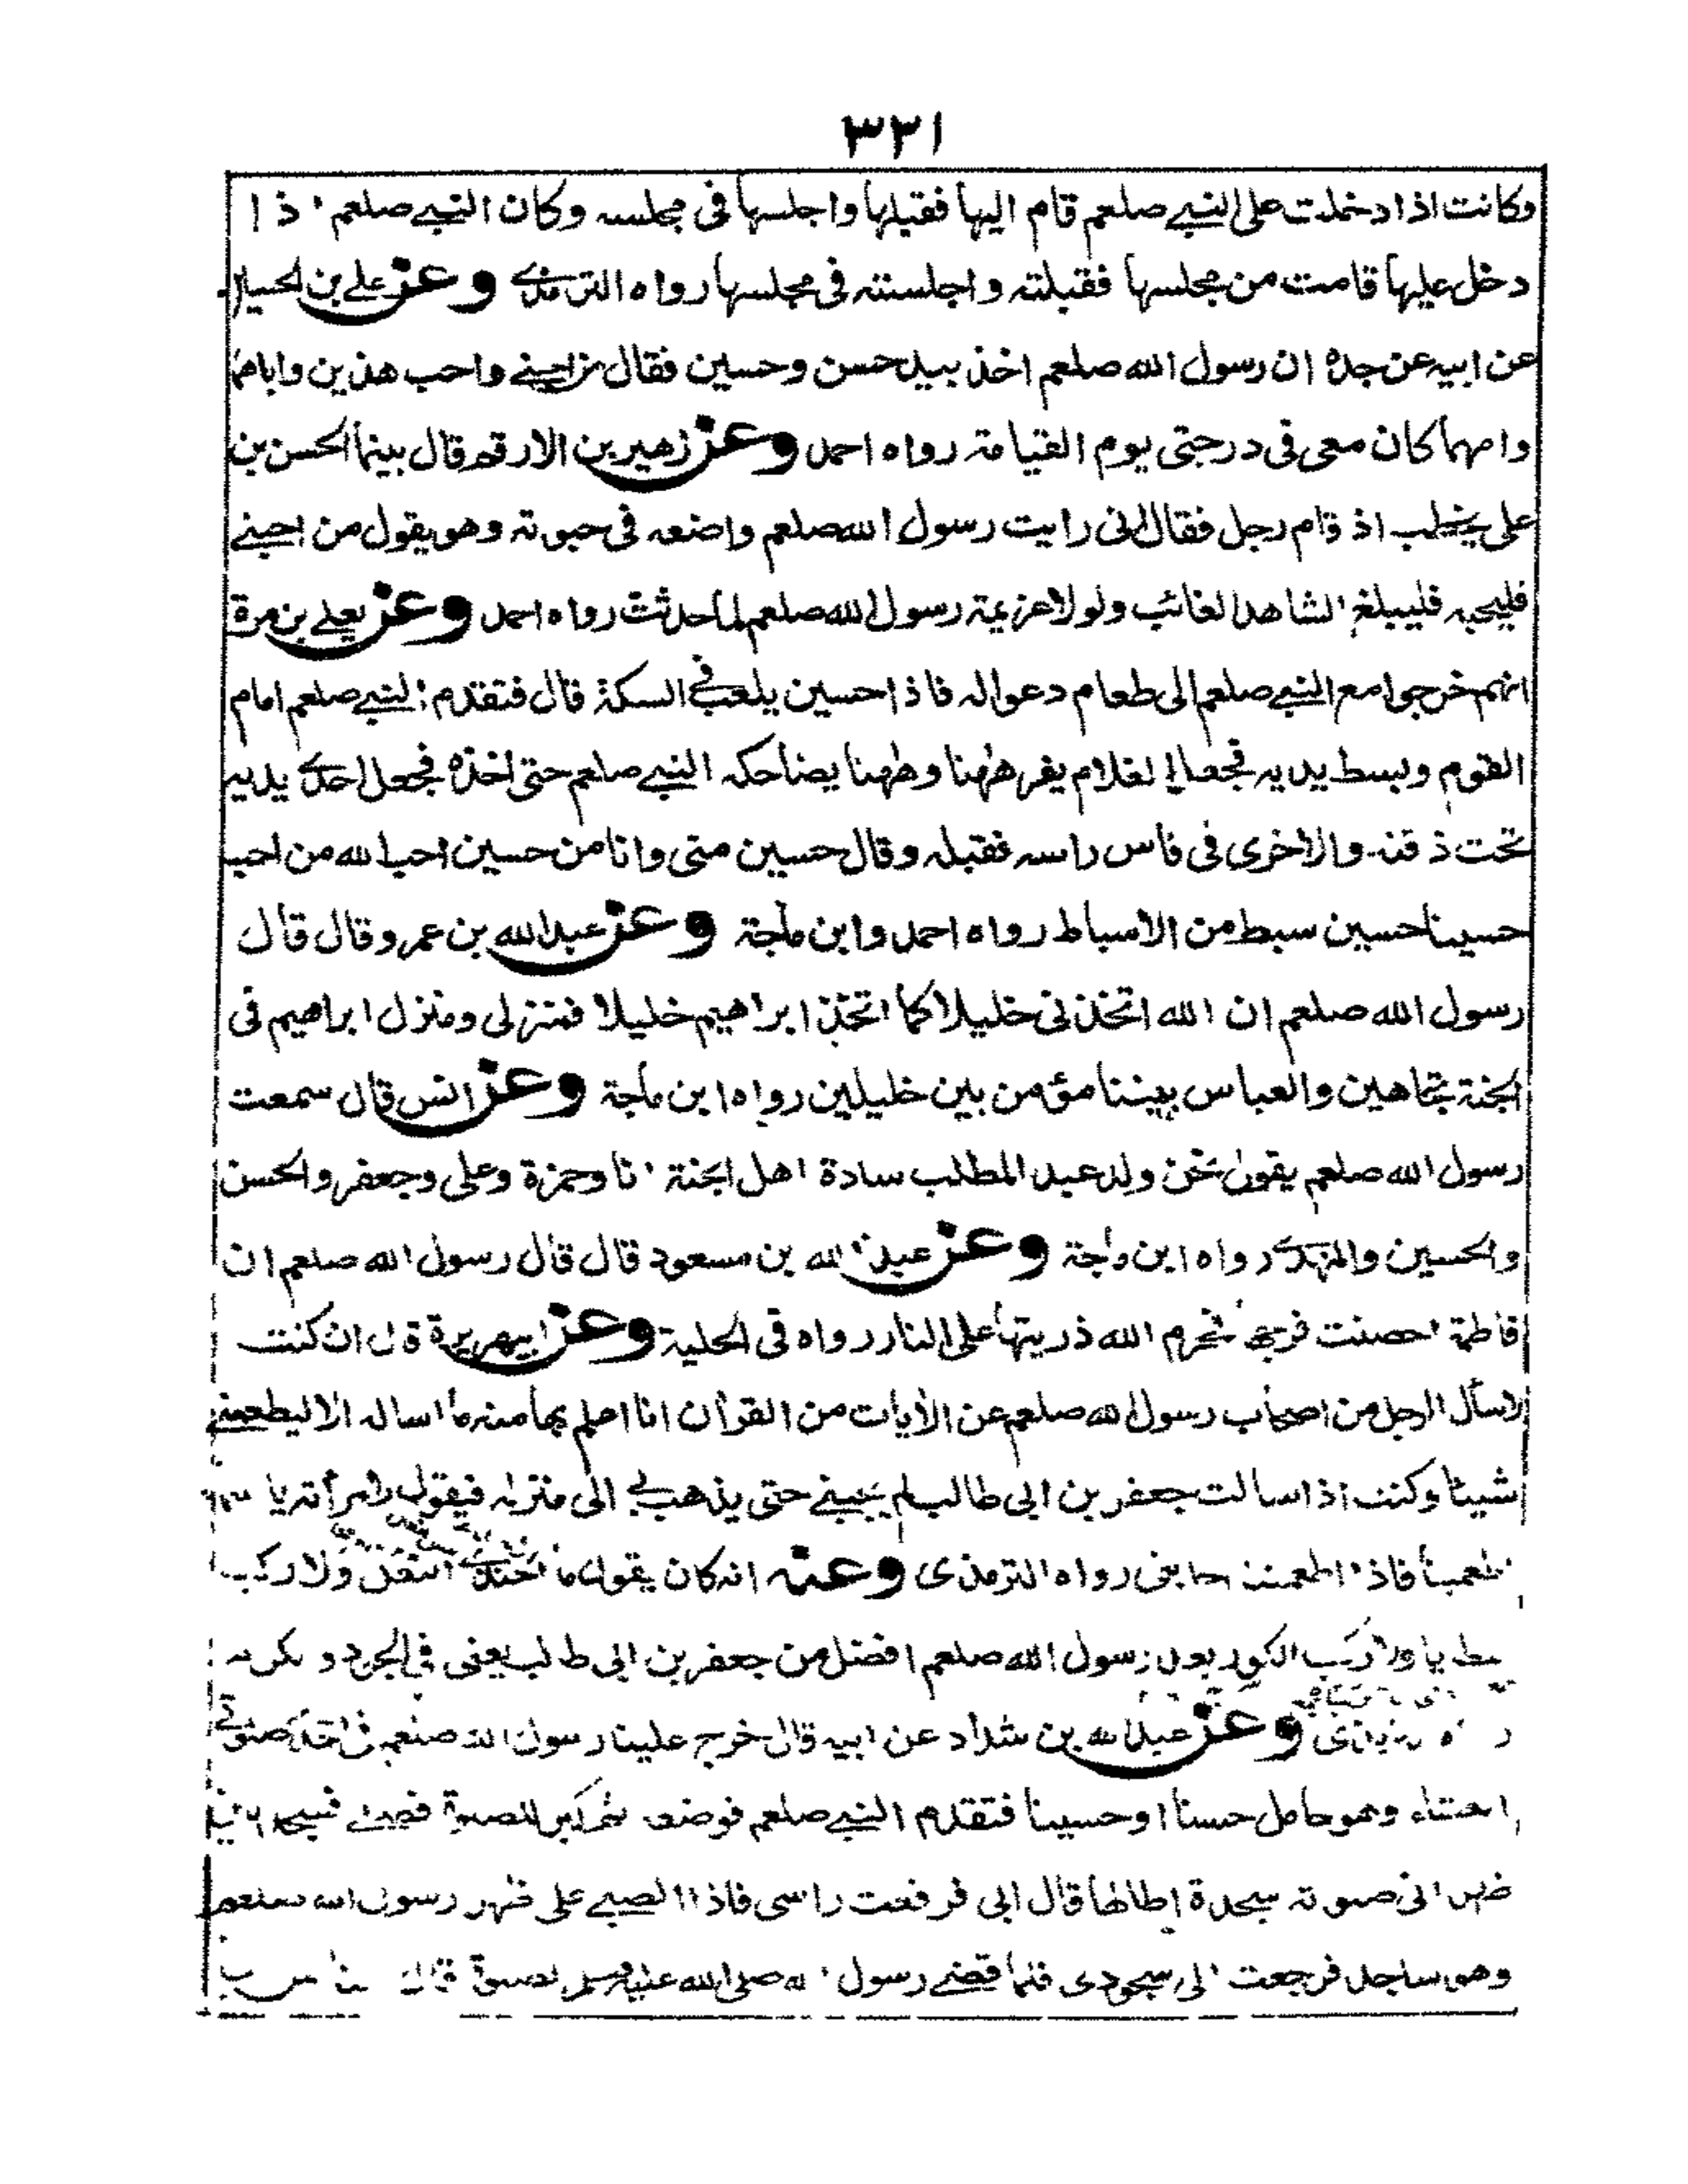 ٣٢١
وكانت اذا دخلت على النبي صلعم قام اليها فقبلها واجلسها فى مجلسه وكان النبي صلعم اذا
دخل عليها قامت من مجلسها فقبلته واجلسته فى مجلسها رواه الترمذي وعن علي بن الحسين
عن ابيه عن جده ان رسول الله صلعم اخذ بيد حسن وحسين فقال من احبني واحب هذين واباهما
وامهما كان معى فى درجتى يوم القيامة رواه احمد وعن زهير بن الارقم قال بينما الحسن بن
على يخطب اذ قام رجل فقال انى رايت رسول الله صلعم واضعه فى حبوته وهو يقول من احبني
فليحبه فليبلغ الشاهد الغائب ولولا عزيمة رسول الله صلعم لما حدثت رواه احمد وعن يعلي بن مرة
انهم خرجوا مع النبي صلعم الى طعام دعوا له فاذا حسين يلعب في السكة قال فتقدم النبي صلعم امام
القوم وبسط يديه فجعل الغلام يفر ههنا وههنا يضاحكه النبي صلعم حتى اخذه فجعل احدي يديه
تحت ذقنه والاخرى فى فاس راسه فقبله وقال حسين منى وانا من حسين احب الله من احب
حسينا حسين سبط من الاسباط رواه احمد وابن ماجة وعن عبد الله بن عمرو قال قال
رسول الله صلعم ان الله اتخذنى خليلا كما اتخذ ابراهيم خليلا فمنزلى ومنزل ابراهيم فى
الجنة تجاهين والعباس بيننا مؤمن بين خليلين رواه ابن ماجة وعن انس قال سمعت
رسول الله صلعم يقول نحن ولد عبد المطلب سادة اهل الجنة انا وحمزة وعلى وجعفر والحسن
والحسين والمهدي رواه ابن ماجة وعن عبد الله بن مسعود قال قال رسول الله صلعم ان
فاطمة احصنت فرجها فحرم الله ذريتها على النار رواه فى الحلية وعن ابي هريرة قال ان كنت
لاسأل الرجل من اصحاب رسول الله صلعم عن الأيات من القرأن انا اعلم بها منه ما اساله الا ليطعمني
شيئا وكنت اذا سالت جعفر بن ابى طالب لم يجبني حتى يذهب بي الى منزله فيقول لامرأته يا
اطعمينا فاذا اطعمتنا اجابنى رواه الترمذى وعنه انه كان يقول ما احتذي النعل ولا ركب
المطايا ولا ركب الكور بعد رسول الله صلعم افضل من جعفر بن ابى طالب يعنى فى الجود والكرم
رواه الترمذى وعن عبد الله بن شداد عن ابيه قال خرج علينا رسول الله صلعم فى احدى صلوتي
العشاء وهو حامل حسنا او حسينا فتقدم النبي صلعم فوضعه ثم كبر للصلوة فصلى فسجد
ظهرانى صلوته سجدة اطالها قال ابى فرفعت راسى فاذا الصبي على ظهر رسول الله صلعم
وهو ساجد فرجعت الى سجودى فلما قضي رسول الله صلى الله عليه وسلم الصلوة قال